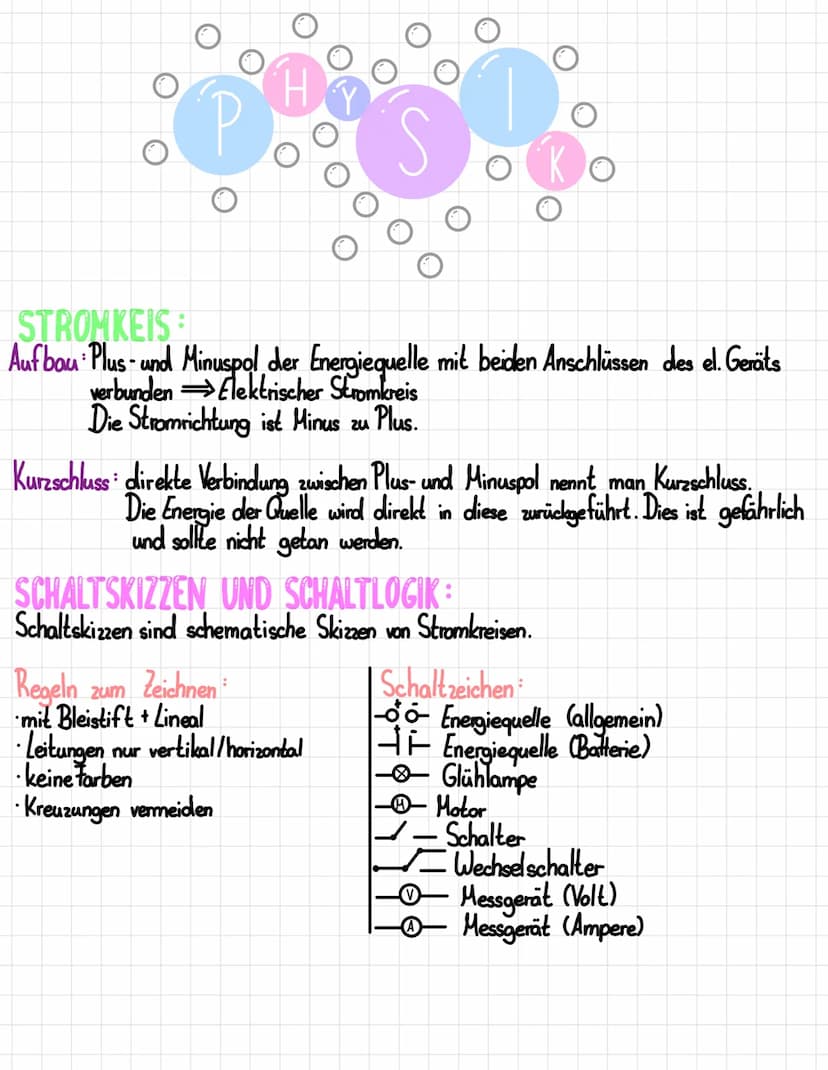 PHYSIK
STROMKEIS:
Aufbau: Plus- und Minuspol der Energiequelle mit beiden Anschlüssen des el. Geräts
verbunden ⟹ Elektrischer Stromkreis
Die Stromrichtung ist Minus zu Plus.
Kurzschluss: direkte Verbindung zwischen Plus- und Minuspol nennt man Kurzschluss.
Die Energie der Quelle wird direkt in diese zurückgeführt. Dies ist gefährlich
und sollte nicht getan werden.
SCHALTSKIZZEN UND SCHALTLOGIK:
Schaltskizzen sind schematische Skizzen von Stromkreisen.
Regeln zum Zeichnen:
· mit Bleistift + Lineal
· Leitungen nur vertikal/horizontal
· keine Farben
· Kreuzungen vermeiden
Schaltzeichen:
Energiequelle (allgemein)
Energiequelle (Batterie)
Glühlampe
M Motor
Schalter
Wechselschalter
V Messgerät (Volt)
A Messgerät (Ampere)